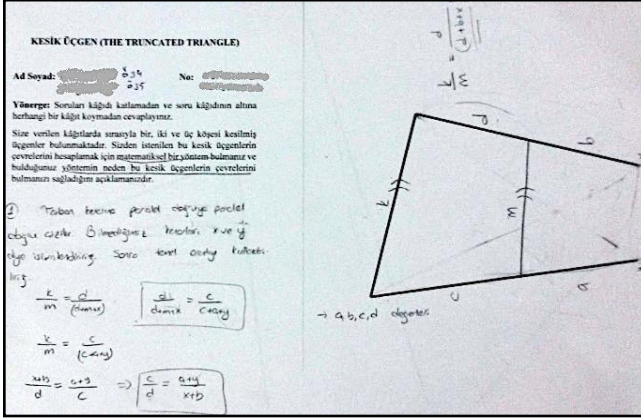 KESİK ÜÇGEN (THE TRUNCATED TRIANGLE)
Ad Soyad: Ö34 No:
Ö35
Yönerge: Soruları kâğıdı katlamadan ve soru kâğıdının altına
herhangi bir kâğıt koymadan cevaplayınız.
Size verilen kâğıtlarda sırasıyla bir, iki ve üç köşesi kesilmiş
üçgenler bulunmaktadır. Sizden istenilen bu kesik üçgenlerin
çevrelerini hesaplamak için matematiksel bir yöntem bulmanız ve
bulduğunuz yöntemin neden bu kesik üçgenlerin çevrelerini
bulmanızı sağladığını açıklamanızdır.
① Taban paralel doğruya paralel
çizilir. Bilmediğimiz x ve y
diye isimlendiririz. Sonra temel
k/m = d/(d+m+x) d/(d+m+x) = c/(c+a+y)
k/m = c/(c+a+y)
x+b/d = a+y/c => c/d = a+y/x+b
→ a,b,c,d
k
d
b
m
c
a